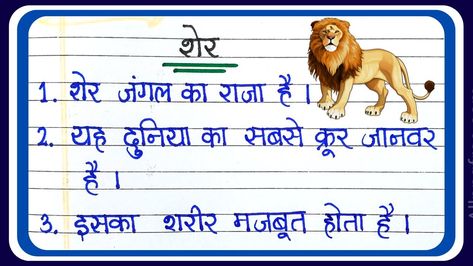 शेर
1. शेर जंगल का राजा है ।
2. यह दुनिया का सबसे क्रूर जानवर
है ।
3. इसका शरीर मजबूत होता है ।